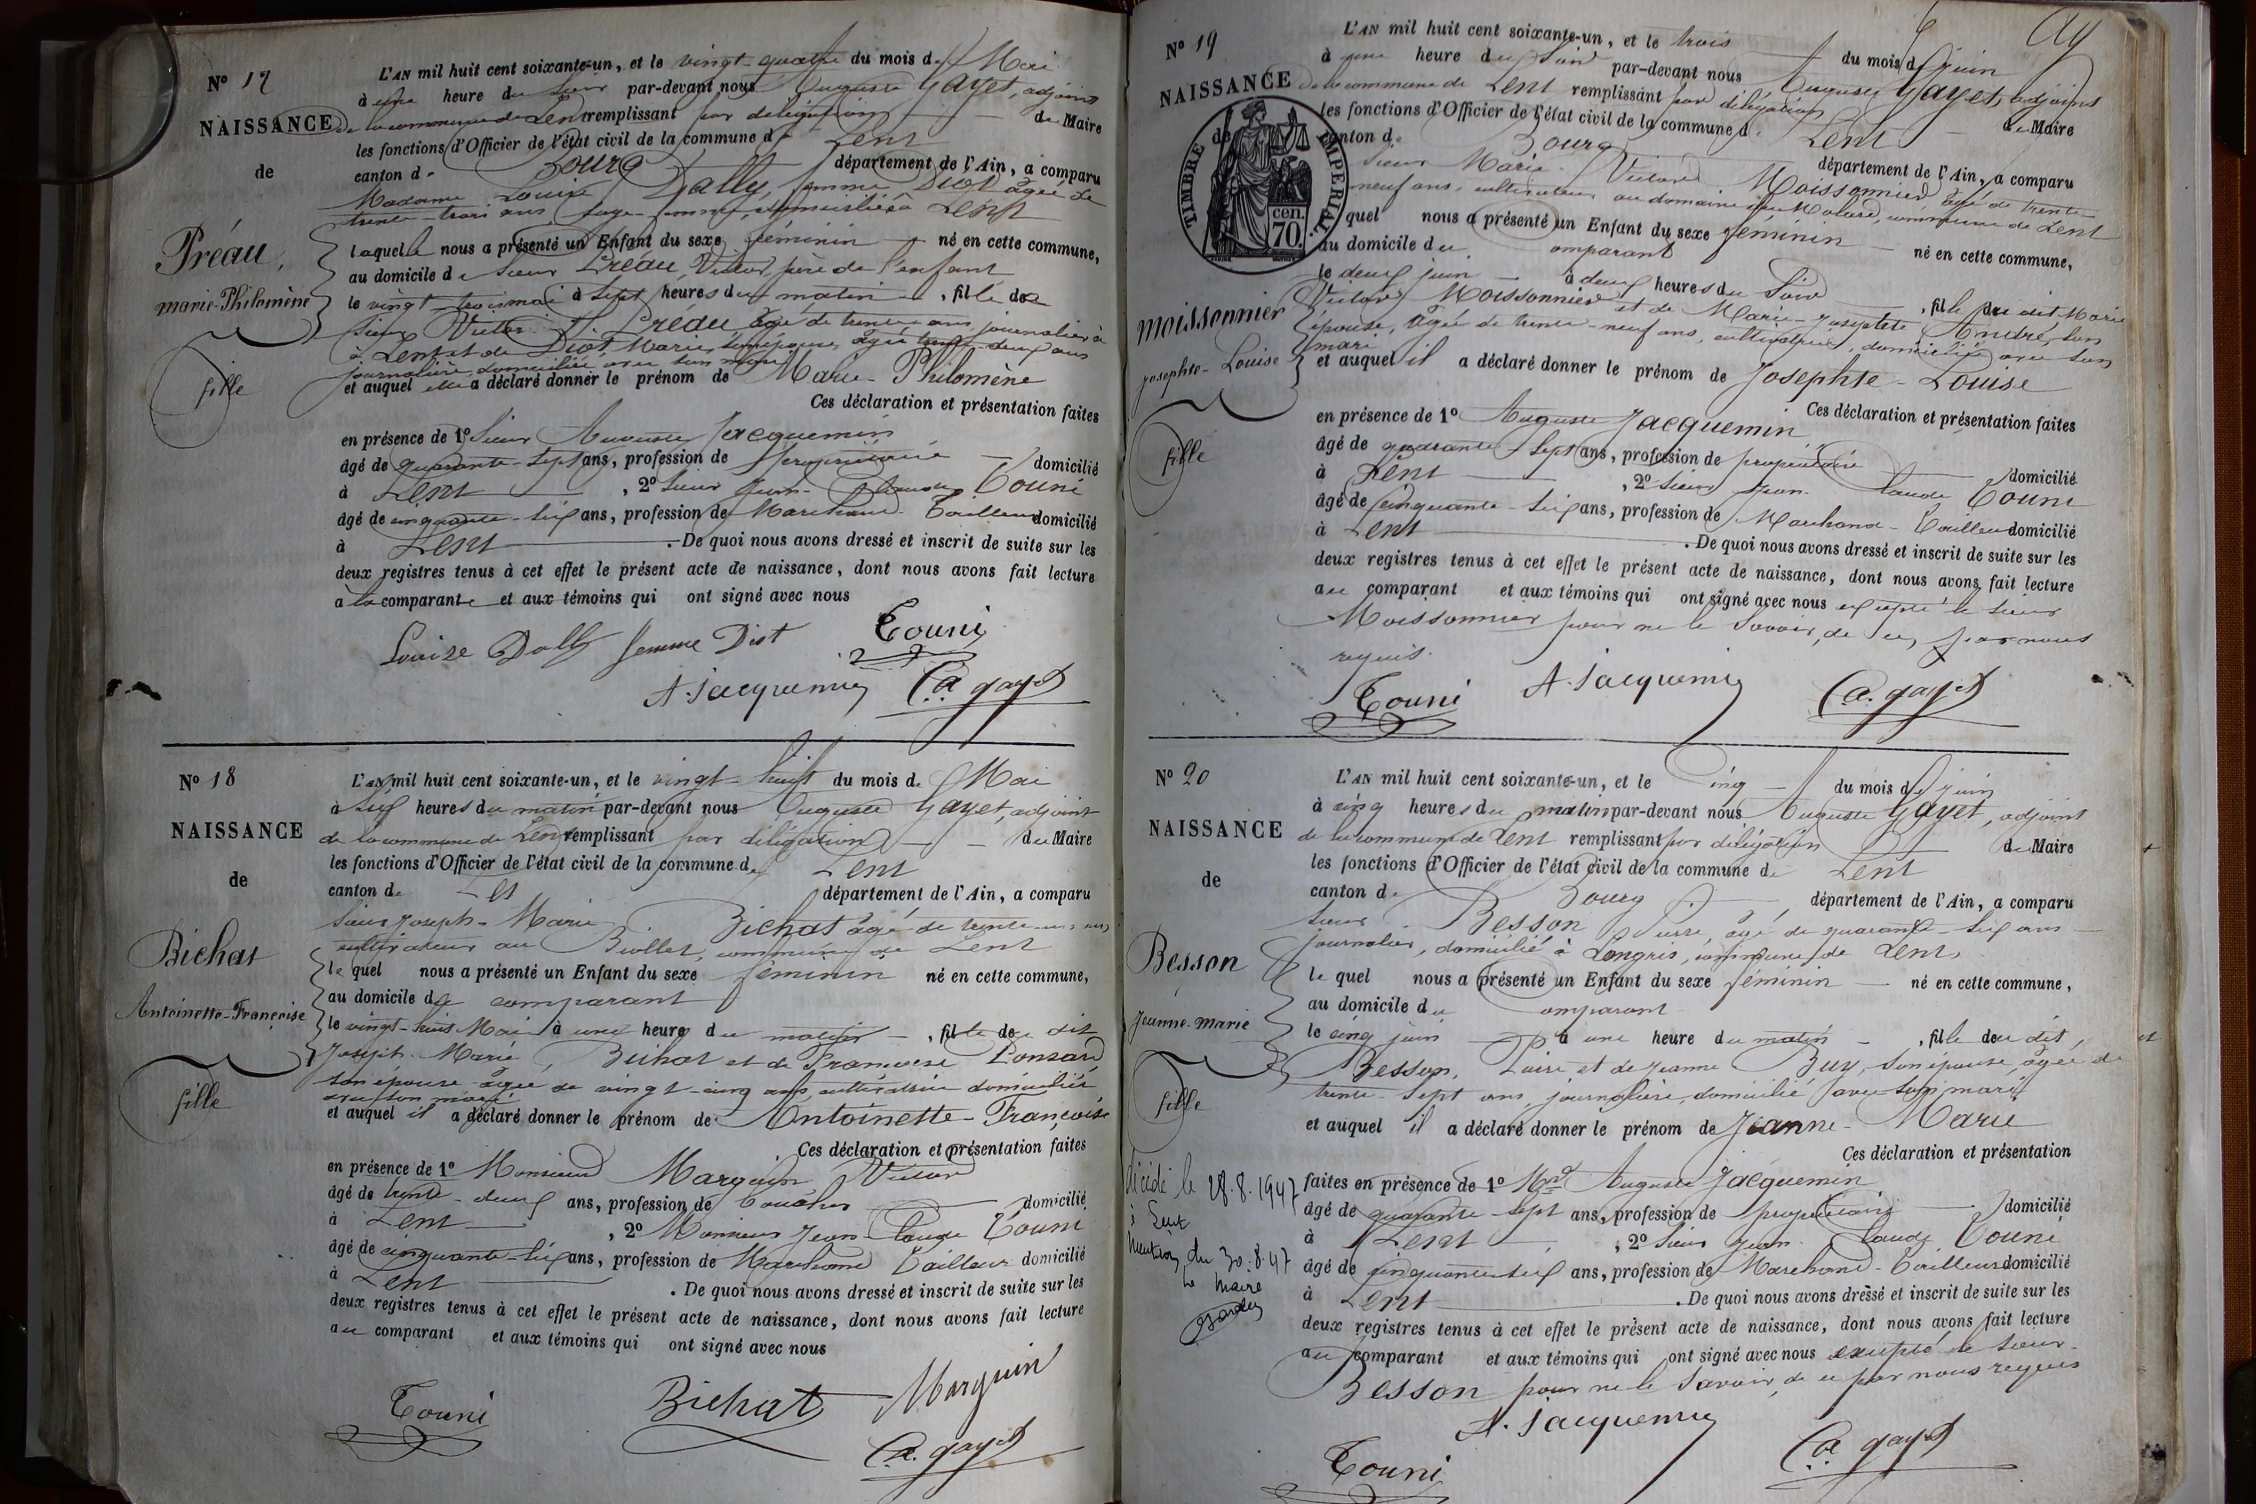 N° 17
NAISSANCE
de
Préau,
marie-Philomène
fille
L'AN mil huit cent soixante-un, et le vingt-quatre du mois de Mai
à une heure du soir par-devant nous Auguste Gayet, adjoint
de la commune de Lent remplissant par délégation du Maire
les fonctions d'Officier de l'état civil de la commune de Lent
canton de Bourg département de l'Ain, a comparu
Madame Louise Dally, femme Diot âgée de
trente-trois ans sage-femme, domiciliée à Lent
laquelle nous a présenté un Enfant du sexe féminin né en cette commune,
au domicile de sieur Préau, Victor, père de l'enfant
le vingt-trois mai à sept heures du matin, fille de
sieur Victor Préau âgé de trente ans journalier à
à Lent et de Diot Marie, son épouse, âgée trente-deux ans
journalière domiciliée avec son mari
et auquel elle a déclaré donner le prénom de Marie-Philomène
Ces déclaration et présentation faites
en présence de 1° Sieur Auguste Jacquemin
âgé de quarante-sept ans, profession de propriétaire domicilié
à Lent, 2° sieur Jean-Claude Touni
âgé de cinquante-six ans, profession de Marchand-Tailleur domicilié
à Lent. De quoi nous avons dressé et inscrit de suite sur les
deux registres tenus à cet effet le présent acte de naissance, dont nous avons fait lecture
à la comparante et aux témoins qui ont signé avec nous
Louise Dally femme Diot Touni
A. Jacquemin a. gayet
N° 18
NAISSANCE
de
Bichat
Antoinette-Françoise
fille
L'AN mil huit cent soixante-un, et le vingt-huit du mois de Mai
à six heures du matin par-devant nous Auguste Gayet, adjoint
de la commune de Lent remplissant par délégation du Maire
les fonctions d'Officier de l'état civil de la commune de Lent
canton de département de l'Ain, a comparu
sieur Joseph-Marie Bichat âgé de trente-un ans
cultivateur au Biollet, commune de Lent
le quel nous a présenté un Enfant du sexe féminin né en cette commune,
au domicile du comparant
le vingt-huit Mai à une heure du matin, fille de dit
Joseph-Marie Bichat et de Françoise Ponsard
son épouse âgée de vingt-cinq ans, cultivatrice domiciliée
avec son mari
et auquel il a déclaré donner le prénom de Antoinette-Françoise
Ces déclaration et présentation faites
en présence de 1° Monsieur Marguin Victor
âgé de trente-deux ans, profession de boucher domicilié
à Lent, 2° Monsieur Jean-Claude Touni
âgé de cinquante-six ans, profession de Marchand Tailleur domicilié
à Lent. De quoi nous avons dressé et inscrit de suite sur les
deux registres tenus à cet effet le présent acte de naissance, dont nous avons fait lecture
au comparant et aux témoins qui ont signé avec nous
Touni Bichat Marguin
a. gayet
N° 19
NAISSANCE
de
TIMBRE IMPERIAL
70 cen.
moissonnier
josephte-Louise
fille
L'AN mil huit cent soixante-un, et le trois du mois de juin
à une heure du soir par-devant nous Auguste Gayet, adjoint
de la commune de Lent remplissant par délégation du Maire
les fonctions d'Officier de l'état civil de la commune de Lent
canton de Bourg département de l'Ain, a comparu
sieur Marie Victor Moissonnier, âgé de trente
neuf ans, cultivateur au domaine du Molard, commune de Lent
quel nous a présenté un Enfant du sexe féminin né en cette commune,
au domicile du comparant
le deux juin à deux heures du soir, fille du dit Marie
Victor Moissonnier et de Marie-josephte André, son
épouse, âgée de trente-neuf ans, cultivatrice, domiciliée avec son
mari
et auquel il a déclaré donner le prénom de Josephte-Louise
Ces déclaration et présentation faites
en présence de 1° Auguste Jacquemin
âgé de quarante sept ans, profession de propriétaire domicilié
à Lent, 2° sieur Jean-Claude Touni
âgé de cinquante-six ans, profession de Marchand-Tailleur domicilié
à Lent. De quoi nous avons dressé et inscrit de suite sur les
deux registres tenus à cet effet le présent acte de naissance, dont nous avons fait lecture
au comparant et aux témoins qui ont signé avec nous excepté le sieur
Moissonnier pour ne le savoir, de ce par nous
requis.
Touni A. Jacquemin a. gayet
N° 20
NAISSANCE
de
Besson
Jeanne-marie
fille
Décédé le 28.8.1947
à Lent
Mention du 30.8.47
Le Maire
L'AN mil huit cent soixante-un, et le cinq du mois de juin
à cinq heures du matin par-devant nous Auguste Gayet, adjoint
de la commune de Lent remplissant par délégation du Maire
les fonctions d'Officier de l'état civil de la commune de Lent
canton de Bourg département de l'Ain, a comparu
sieur Besson Pierre, âgé de quarante-six ans
journalier, domicilié à Longris, commune de Lent,
le quel nous a présenté un Enfant du sexe féminin né en cette commune,
au domicile du comparant
le cinq juin à une heure du matin, fille du dit,
Besson, Pierre et de Jeanne Buy, son épouse, âgée de
trente-sept ans, journalière, domicilié avec son mari
et auquel il a déclaré donner le prénom de Jeanne-Marie
Ces déclaration et présentation
faites en présence de 1° Auguste Jacquemin
âgé de quarante-sept ans, profession de propriétaire domicilié
à Lent, 2° sieur Jean-Claude Touni
âgé de cinquante-six ans, profession de Marchand-Tailleur domicilié
à Lent. De quoi nous avons dressé et inscrit de suite sur les
deux registres tenus à cet effet le présent acte de naissance, dont nous avons fait lecture
au comparant et aux témoins qui ont signé avec nous excepté le sieur
Besson pour ne le savoir, de ce par nous requis
A. Jacquemin
Touni a. gayet